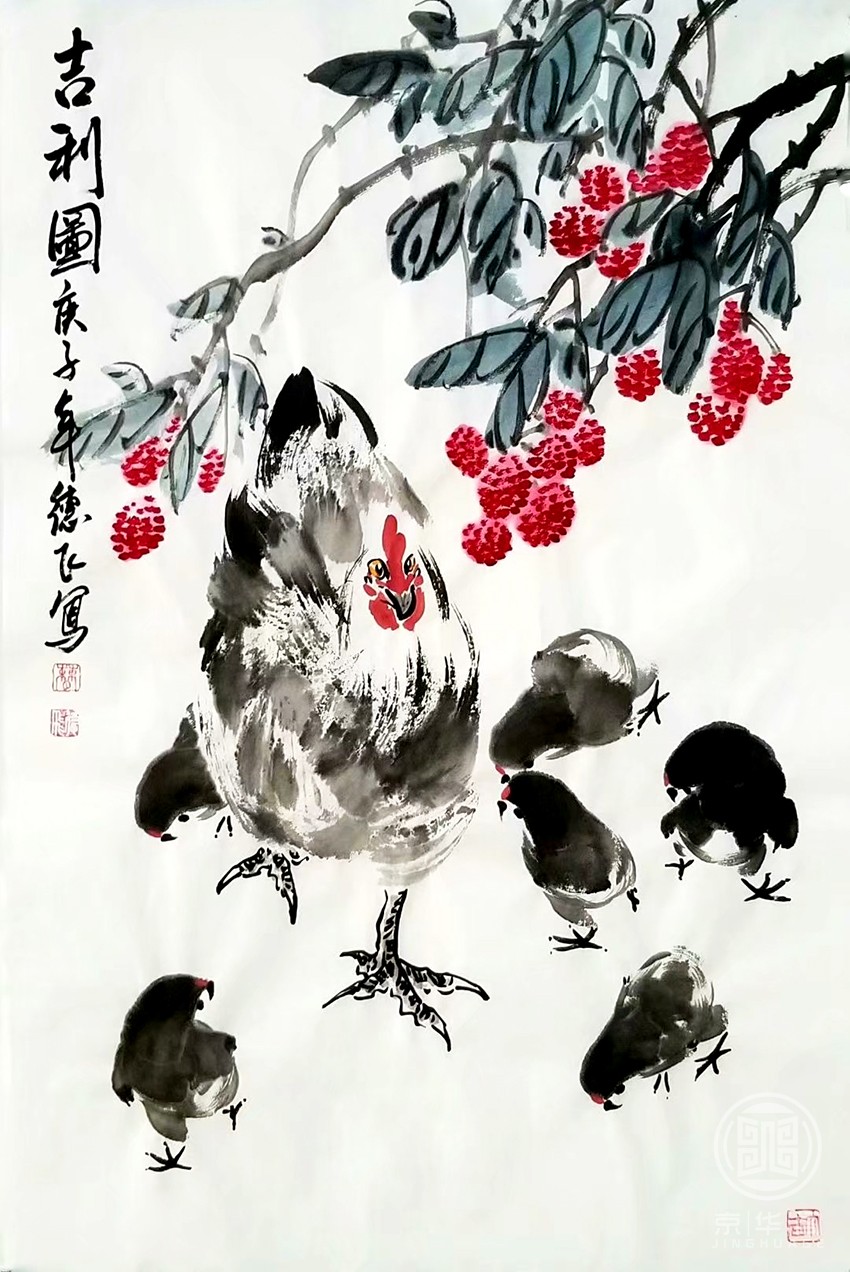 吉利圖庚子年德飞寫
京华
JINGHUA